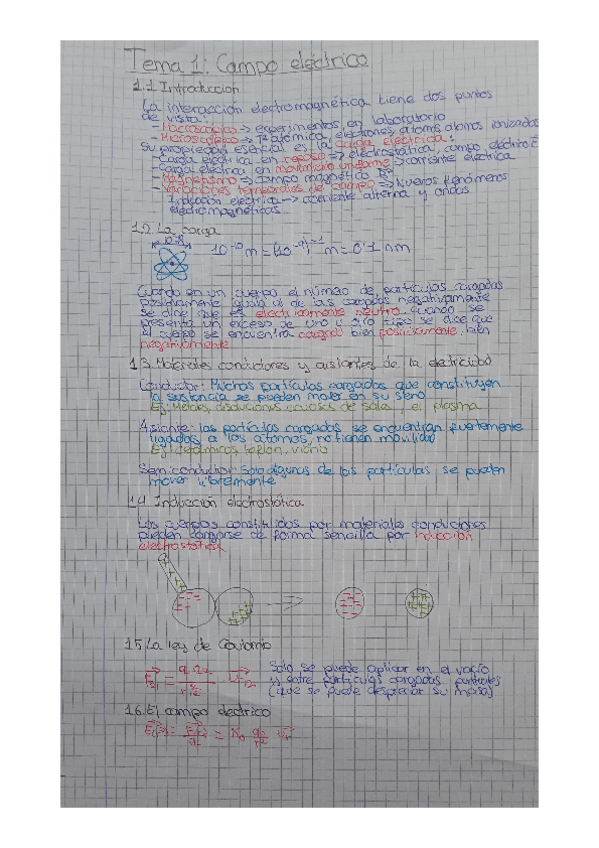 Tema 1: Campo eléctrico
1.1 Introducción
La interacción electromagnética tiene dos puntos
de vista:
- Macroscópico => experimentos en laboratorio
- Microscópico => atómica, electrones, átomos ionizados
Su propiedad esencial es la carga eléctrica:
- Carga eléctrica en reposo => electrostática, campo eléctrico E
- Carga eléctrica en movimiento uniforme => corriente eléctrica
- Magnetismo => campo magnético B
- Variaciones temporales de campo => Nuevos fenómenos
Inducción eléctrica -> corriente alterna y ondas
electromagnéticas
1.2 La carga
10⁻¹⁰ m = 0'1 nm
Cuando en un cuerpo el número de partículas cargadas
positivamente iguala al de las cargadas negativamente
se dice que es electricamente neutro, cuando se
presenta un exceso de uno u otro tipo se dice que
el cuerpo se encuentra cargado bien positivamente, bien
negativamente
1.3 Materiales conductores y aislantes de la electricidad
Conductor: Muchas partículas cargadas que constituyen
la sustancia se pueden mover en su seno
Ej: Metales, disoluciones acuosas de sales y el plasma
Aislante: las partículas cargadas se encuentran fuertemente
ligadas a los átomos, no tienen movilidad
Ej: cerámicas, teflón, vidrio
Semiconductor: Solo algunas de las partículas se pueden
mover libremente
1.4 Inducción electrostática
Los cuerpos constituidos por materiales conductores
pueden cargarse de forma sencilla por inducción
electrostática
1.5 La ley de Coulomb
Solo se puede aplicar en el vacío
y entre partículas cargadas puntuales
(que se puede despreciar su masa)
1.6 El campo electrico